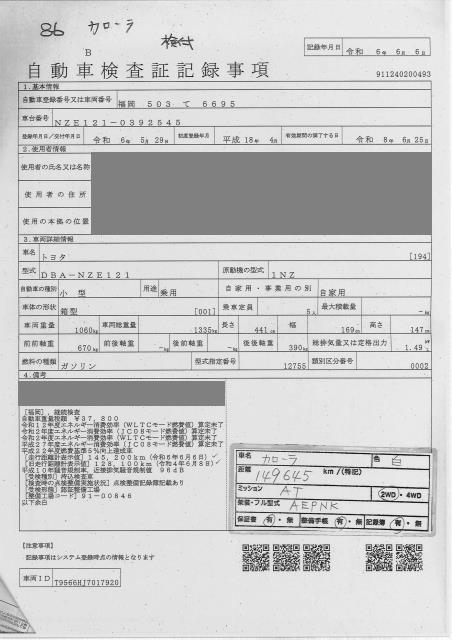 86 カローラ
検付
B
記録年月日 令和 6年 6月 6日
自動車検査証記録事項
911240200493
1.基本情報
自動車登録番号又は車両番号 福岡 503 て 6695
車台番号 NZE121-0392545
登録年月日/交付年月日 令和 6年 5月 29日 初度登録年月 平成 18年 4月 有効期間の満了する日 令和 8年 6月 25日
2.使用者情報
使用者の氏名又は名称
使用者の住所
使用の本拠の位置
3.車両詳細情報
車名 トヨタ [194]
型式 DBA-NZE121 原動機の型式 1NZ
自動車の種別 小型 用途 乗用 自家用・事業用の別 自家用
車体の形状 箱型 [001] 乗車定員 5人 最大積載量 -kg
車両重量 1060kg 車両総重量 1335kg 長さ 441cm 幅 169cm 高さ 147cm
前前軸重 670kg 前後軸重 -kg 後前軸重 -kg 後後軸重 390kg 総排気量又は定格出力 1.49
燃料の種類 ガソリン 型式指定番号 12755 類別区分番号 0002
4.備考
[福岡],継続検査
自動車重量税額 ¥37,800
令和12年度エネルギー消費効率(WLTCモード燃費値)算定未了
令和2年度エネルギー消費効率(JC08モード燃費値)算定未了
令和2年度エネルギー消費効率(WLTCモード燃費値)算定未了
平成27年度エネルギー消費効率(JC08モード燃費値)算定未了
平成22年度燃費基準5%向上達成車
[走行距離計表示値]145,200km(令和6年6月6日)
[旧走行距離計表示値]128,100km(令和4年6月8日)
平成10年騒音規制車、近接排気騒音規制値 96dB
[受検種別]持込検査車
[検査時の点検整備実施状況]点検整備記録簿記載あり
[受検形態]認証整備工場
[整備工場コード]91-00846
以下余白
車名 カローラ 色 白
距離 149645 km/(特記)
ミッション AT 2WD・4WD
架装・フル型式 AEPNK
保証書 有・無 整備手帳 有・無 記録簿 有・無
【注意事項】
記録事項はシステム登録時点の情報となります
車両ID T9566HJ7017920